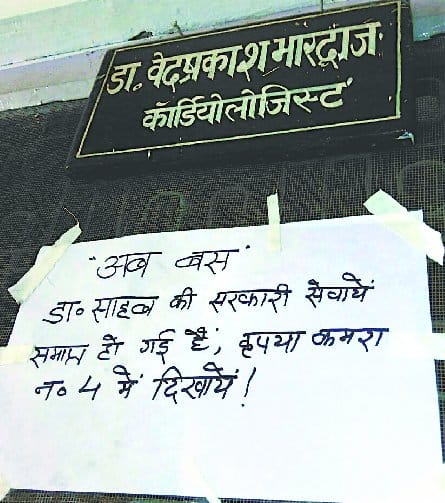 डा॰ वेदप्रकाश भारद्वाज
कॉर्डियोलोजिस्ट
"अब बस"
डा॰ साहब की सरकारी सेवायें
समाप्त हो गई हैं, कृपया कमरा
न॰ 4 में दिखायें!